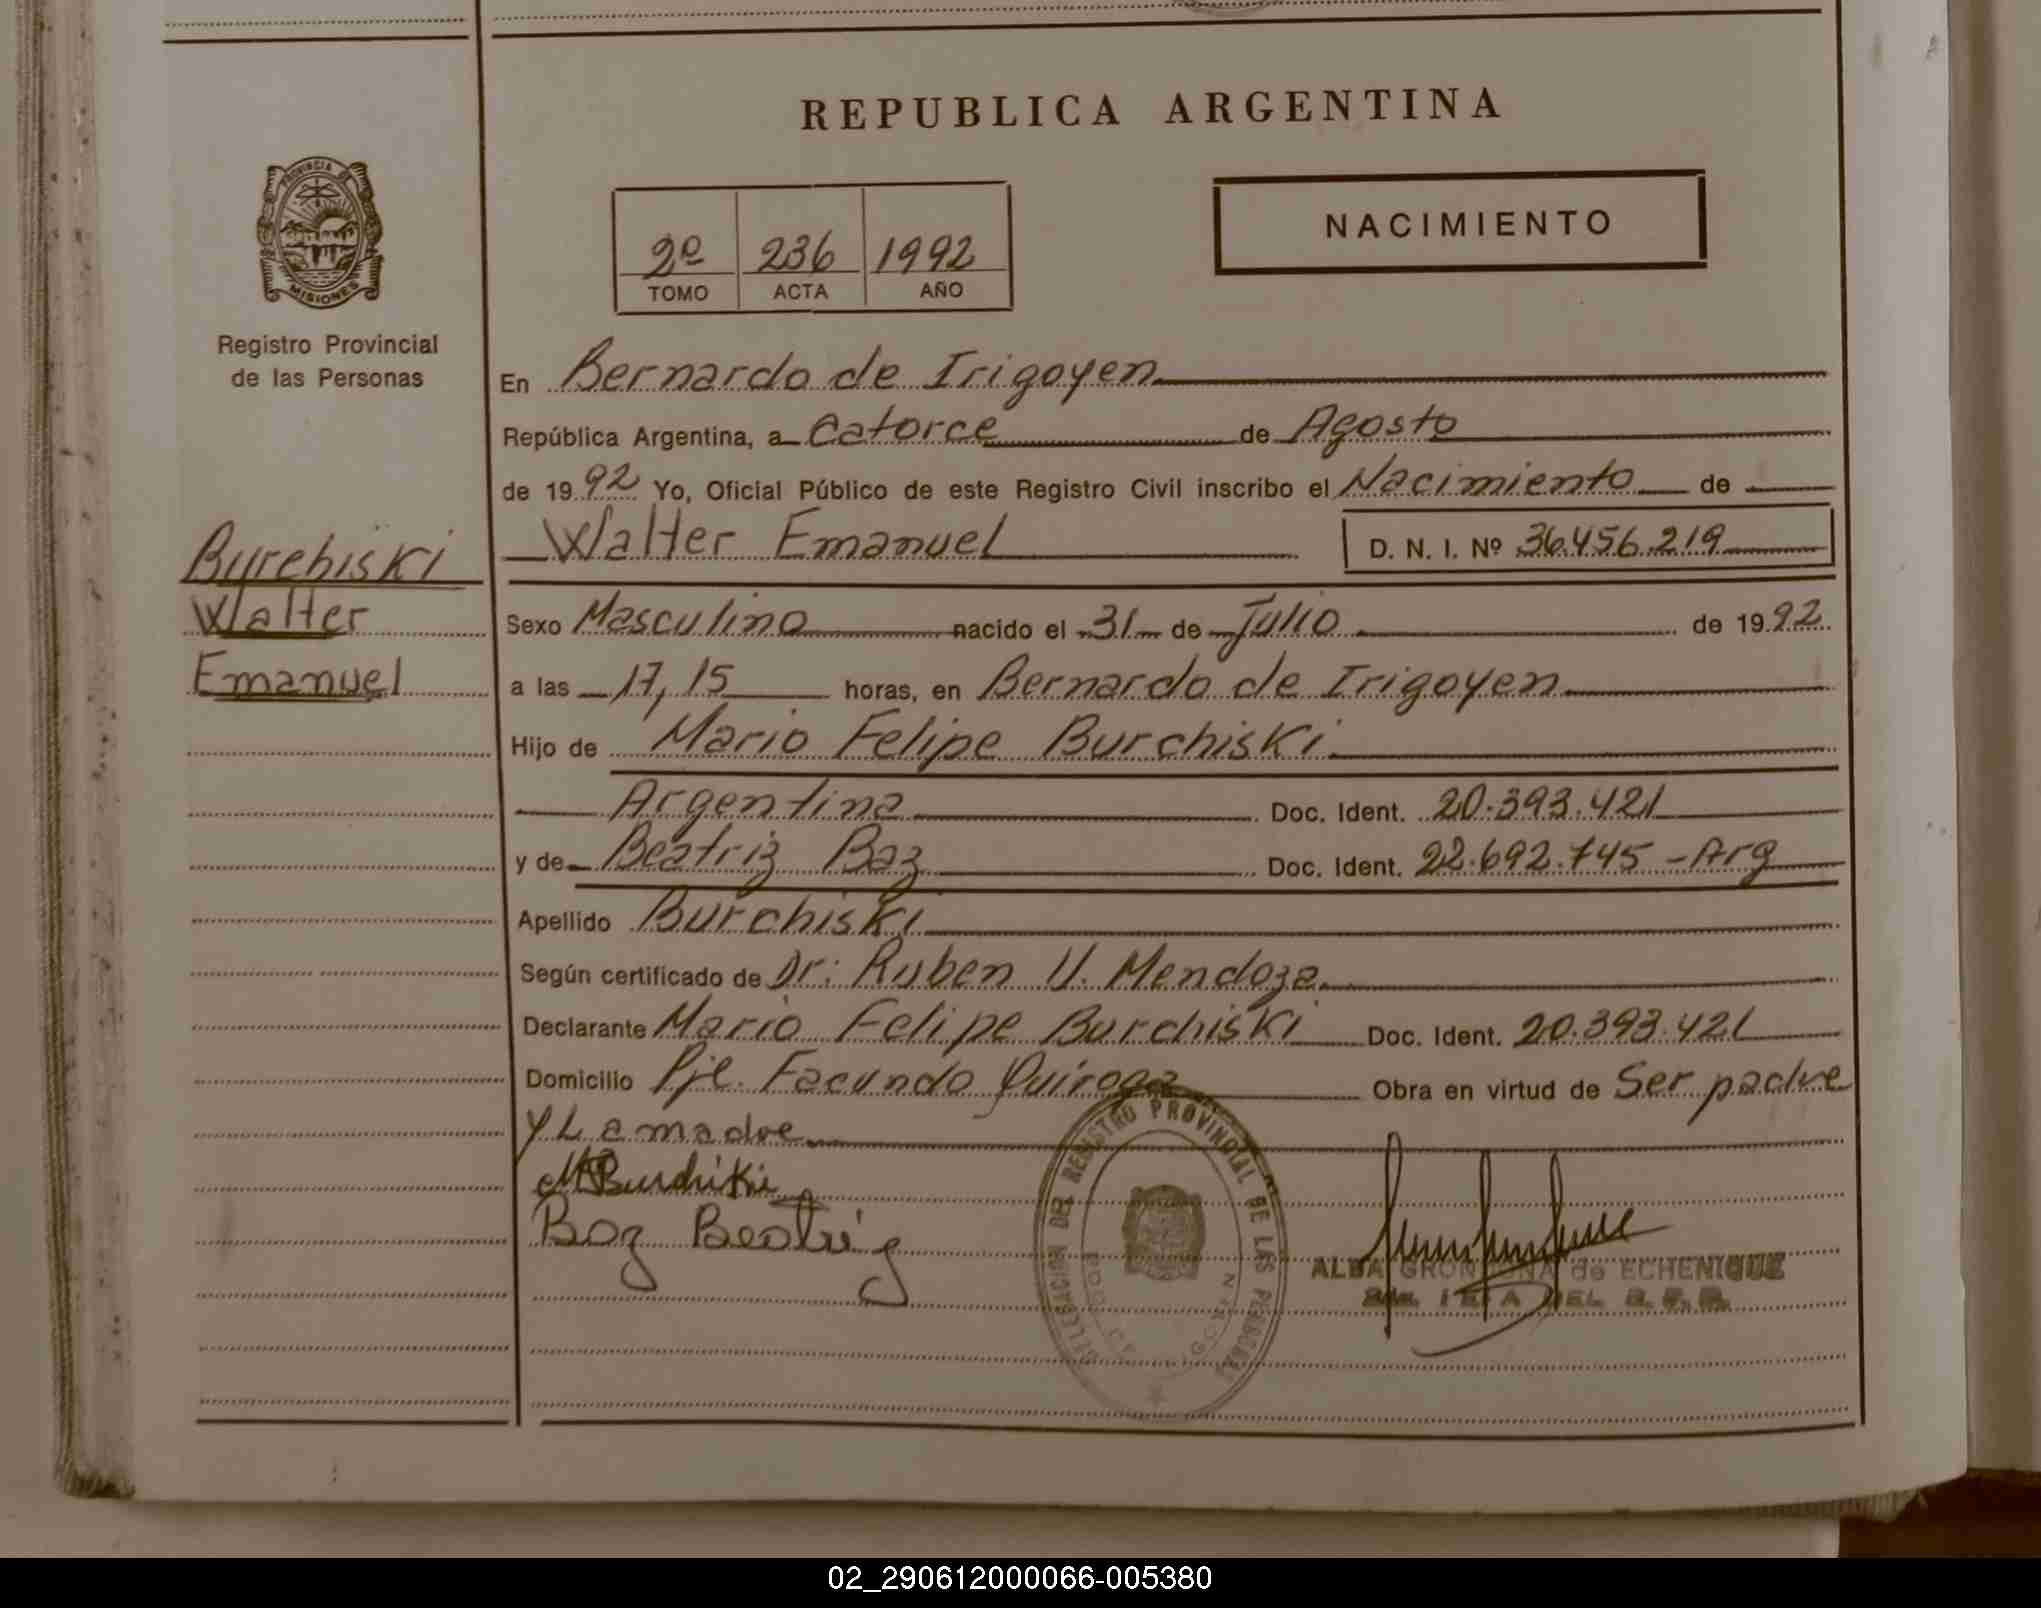 REPUBLICA ARGENTINA
PROVINCIA
MISIONES
Registro Provincial
de las Personas
2º 236 1992
TOMO ACTA AÑO
NACIMIENTO
En Bernardo de Irigoyen
República Argentina, a Catorce de Agosto
de 1992 Yo, Oficial Público de este Registro Civil inscribo el Nacimiento de
Walter Emanuel D. N. I. Nº 36.456.219
Burchiski
Walter
Emanuel
Sexo Masculino nacido el 31 de Julio de 1992
a las 17,15 horas, en Bernardo de Irigoyen
Hijo de Mario Felipe Burchiski
Argentina Doc. Ident. 20.393.421
y de Beatriz Baz Doc. Ident. 22.692.745 - Arg
Apellido Burchiski
Según certificado de Dr: Ruben U. Mendoza
Declarante Mario Felipe Burchiski Doc. Ident. 20.393.421
Domicilio Pje. Facundo Quiroga Obra en virtud de Ser padre
y La madre
Baz Beatriz
DELEGACION DEL REGISTRO PROVINCIAL DE LAS PERSONAS
ALBA de ECHENIQUE
02_290612000066-005380